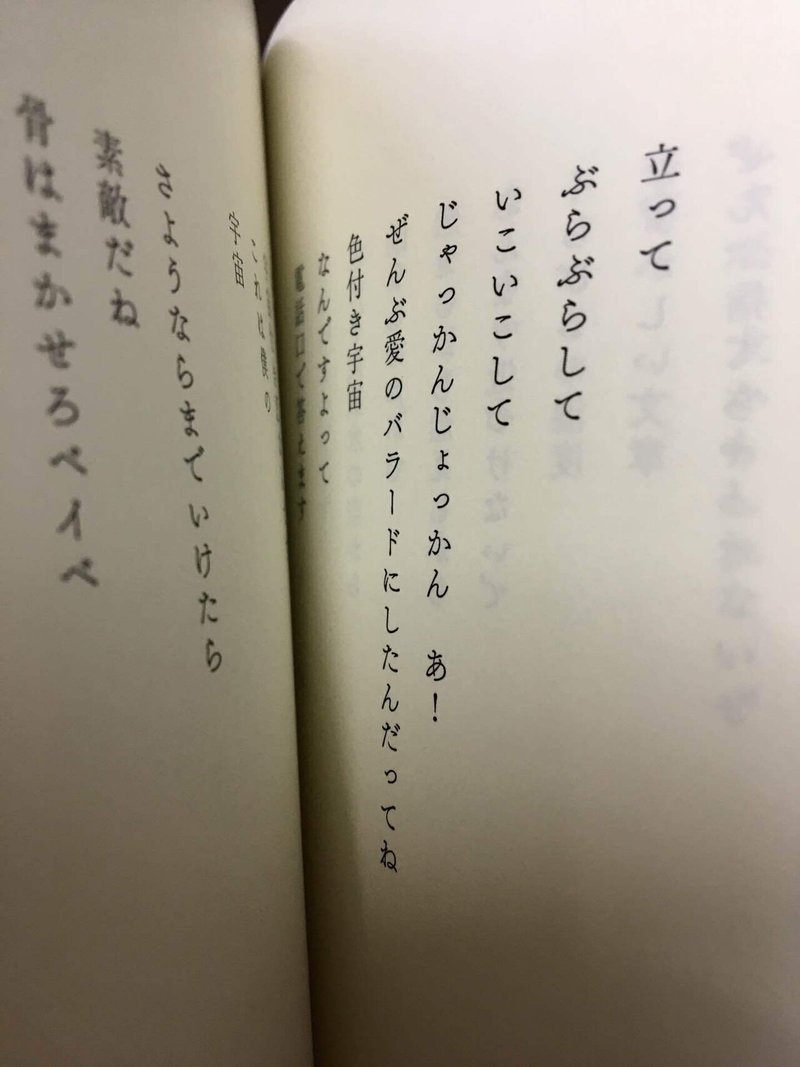 立って
ぶらぶらして
いこいこして
じゃっかんじょっかん　あ！
ぜんぶ愛のバラードにしたんだってね
色付き宇宙
なんですよって
電話口で答えます
これは僕の
宇宙
さようならまでいけたら
素敵だね
骨はまかせろベイベ